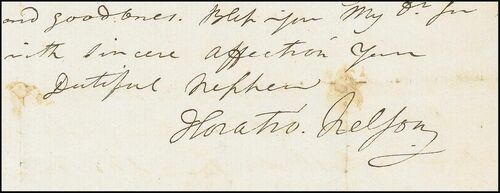 and good ones. Bless you My Dr Sir
with sincere affection Your
Dutiful Nephew
Horatio. Nelson